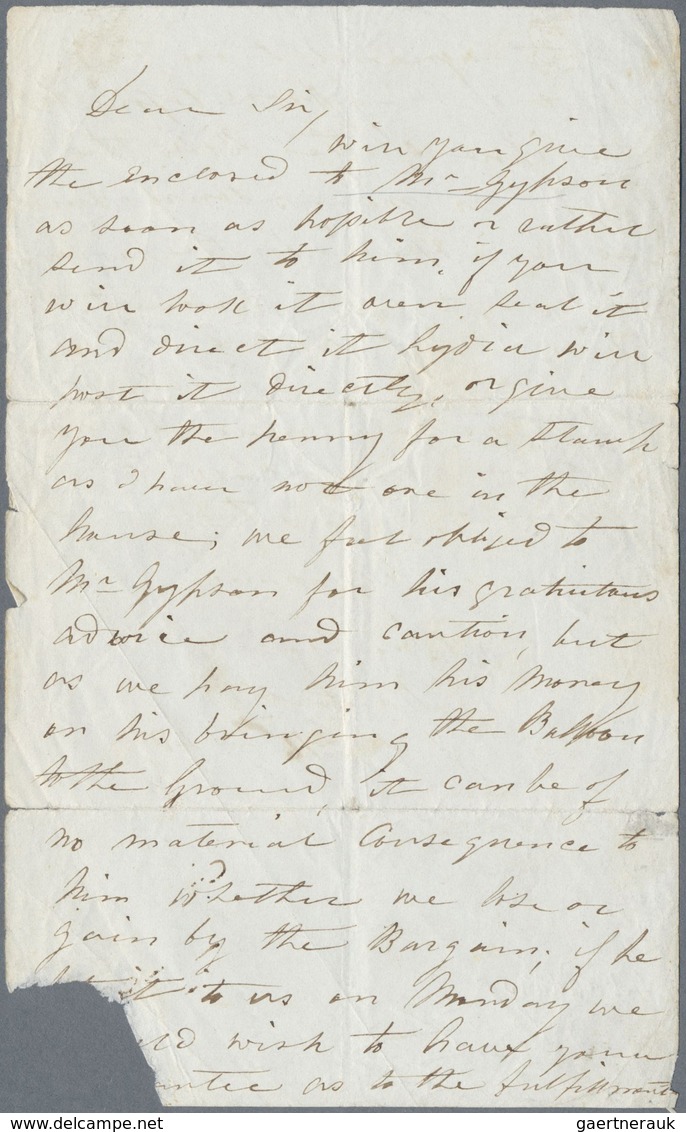 Dear Sir,
will you give
the enclosed to Mr Gypson
as soon as possible or rather
send it to him, if you
will look it over seal it
and direct it Lydia will
post it directly, or give
you the penny for a stamp
as I have not one in the
house; we feel obliged to
Mr Gypson for his gratuitous
advice and caution, but
as we pay him his money
on his bringing the Balloon
to the Ground, it can be of
no material consequence to
him whether we lose or
gain by the Bargain; if he
it to us on Monday we
wish to have your
as to the fulfillment
gaertnerauk @ www.delcampe.net